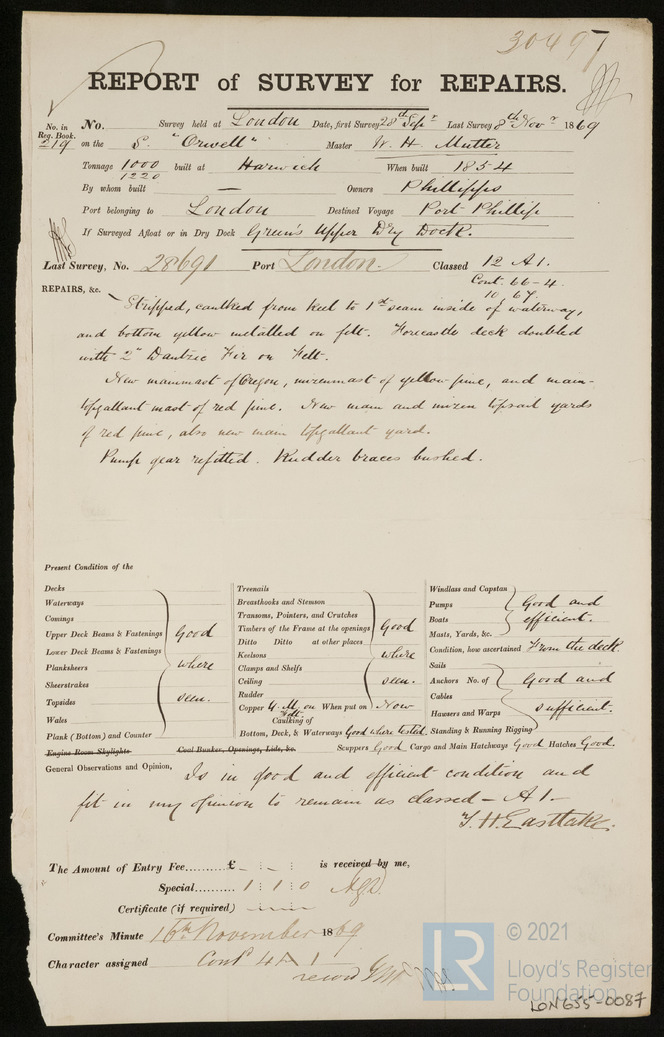 30497
REPORT of SURVEY for REPAIRS.
No. in Reg. Book. 219
No. Survey held at London Date, first Survey 28th Sepr Last Survey 8th Novr 1869
on the S. "Orwell" Master W. H. Mutter
Tonnage 1000 1220 built at Harwich When built 1854
By whom built — Owners Phillipps
Port belonging to London Destined Voyage Port Phillip
If Surveyed Afloat or in Dry Dock Green's Upper Dry Dock.
Last Survey, No. 28691 Port London. Classed 12 A1.
Cont. 66-4
10, 67.
REPAIRS, &c.
Stripped, caulked from keel to 1st seam inside of waterway,
and bottom yellow metalled on felt. Forecastle deck doubled
with 2" Dantzic Fir on Felt.
New mainmast of Oregon, mizenmast of yellow pine, and main-
topgallant mast of red pine. New main and mizen topsail yards
of red pine, also new main topgallant yard.
Pump gear refitted. Rudder braces bushed.
Present Condition of the
Decks
Waterways
Comings
Upper Deck Beams & Fastenings
Lower Deck Beams & Fastenings
Planksheers
Sheerstrakes
Topsides
Wales
Plank (Bottom) and Counter
Good where seen.
Engine Room Skylights
Coal Bunker, Openings, Lids, &c.
Treenails
Breasthooks and Stemson
Transoms, Pointers, and Crutches
Timbers of the Frame at the openings
Ditto Ditto at other places
Keelsons
Clamps and Shelfs
Ceiling
Rudder
Good where seen.
Copper Y. M. on Felt. When put on Now
Caulking of
Bottom, Deck, & Waterways Good where tested.
Windlass and Capstan
Pumps
Boats
Masts, Yards, &c.
Good and efficient.
Condition, how ascertained From the deck.
Sails
Anchors No. of
Cables
Hawsers and Warps
Good and sufficient.
Standing & Running Rigging
Scuppers Good Cargo and Main Hatchways Good Hatches Good.
General Observations and Opinion, Is in good and efficient condition and
fit in my opinion to remain as classed – A1 –
T. H. Eastlake.
The Amount of Entry Fee.........£ - : - : is received by me,
Special.......... 1 : 1 : 0
Certificate (if required)
Committee's Minute 16th November 1869
Character assigned Contd 4 A 1
© 2021
LR
Lloyd's Register
Foundation
LON655-0087